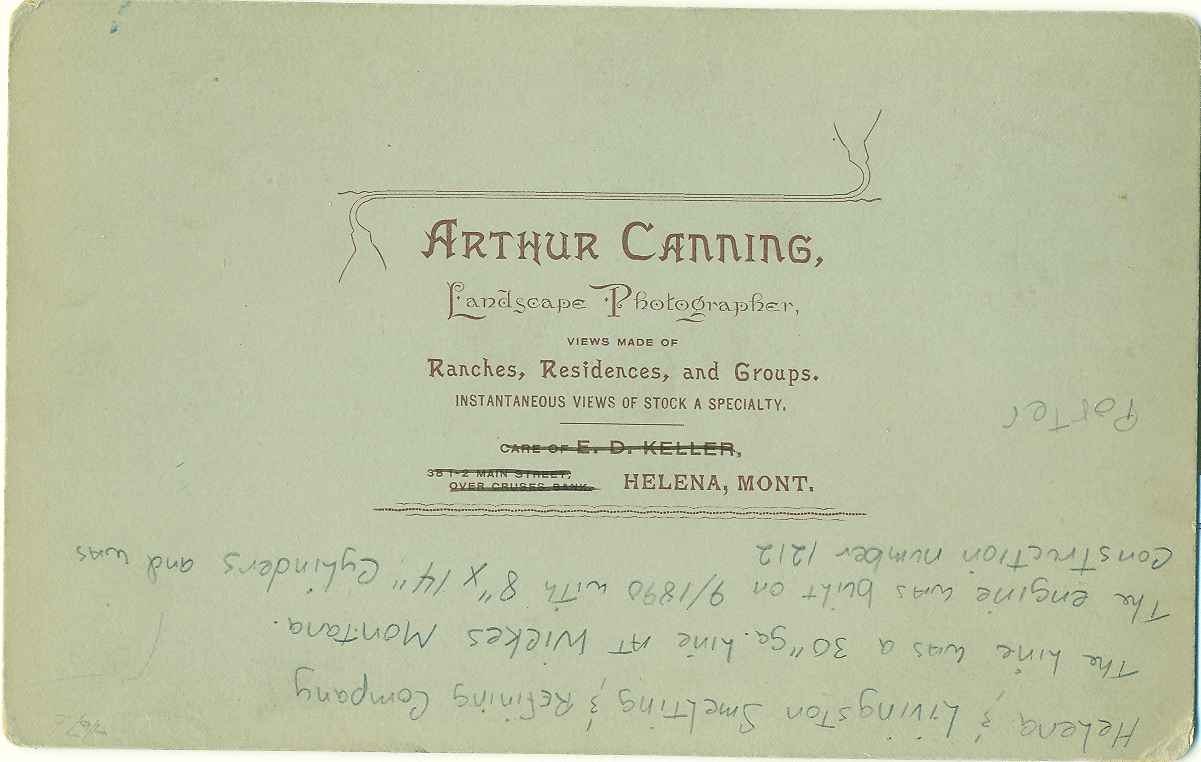 ARTHUR CANNING,
Landscape Photographer,
VIEWS MADE OF
Ranches, Residences, and Groups.
INSTANTANEOUS VIEWS OF STOCK A SPECIALTY.
CARE OF E. D. KELLER,
MAIN STREET,
OVER CRUSES BANK,
HELENA, MONT.
Helena & Livingston Smelting & Refining Company
The line was a 30" ga. line AT Wickes Montana.
The engine was built on 9/1890 with 8" X 14" Cylinders and was
Construction number 1212
Porter